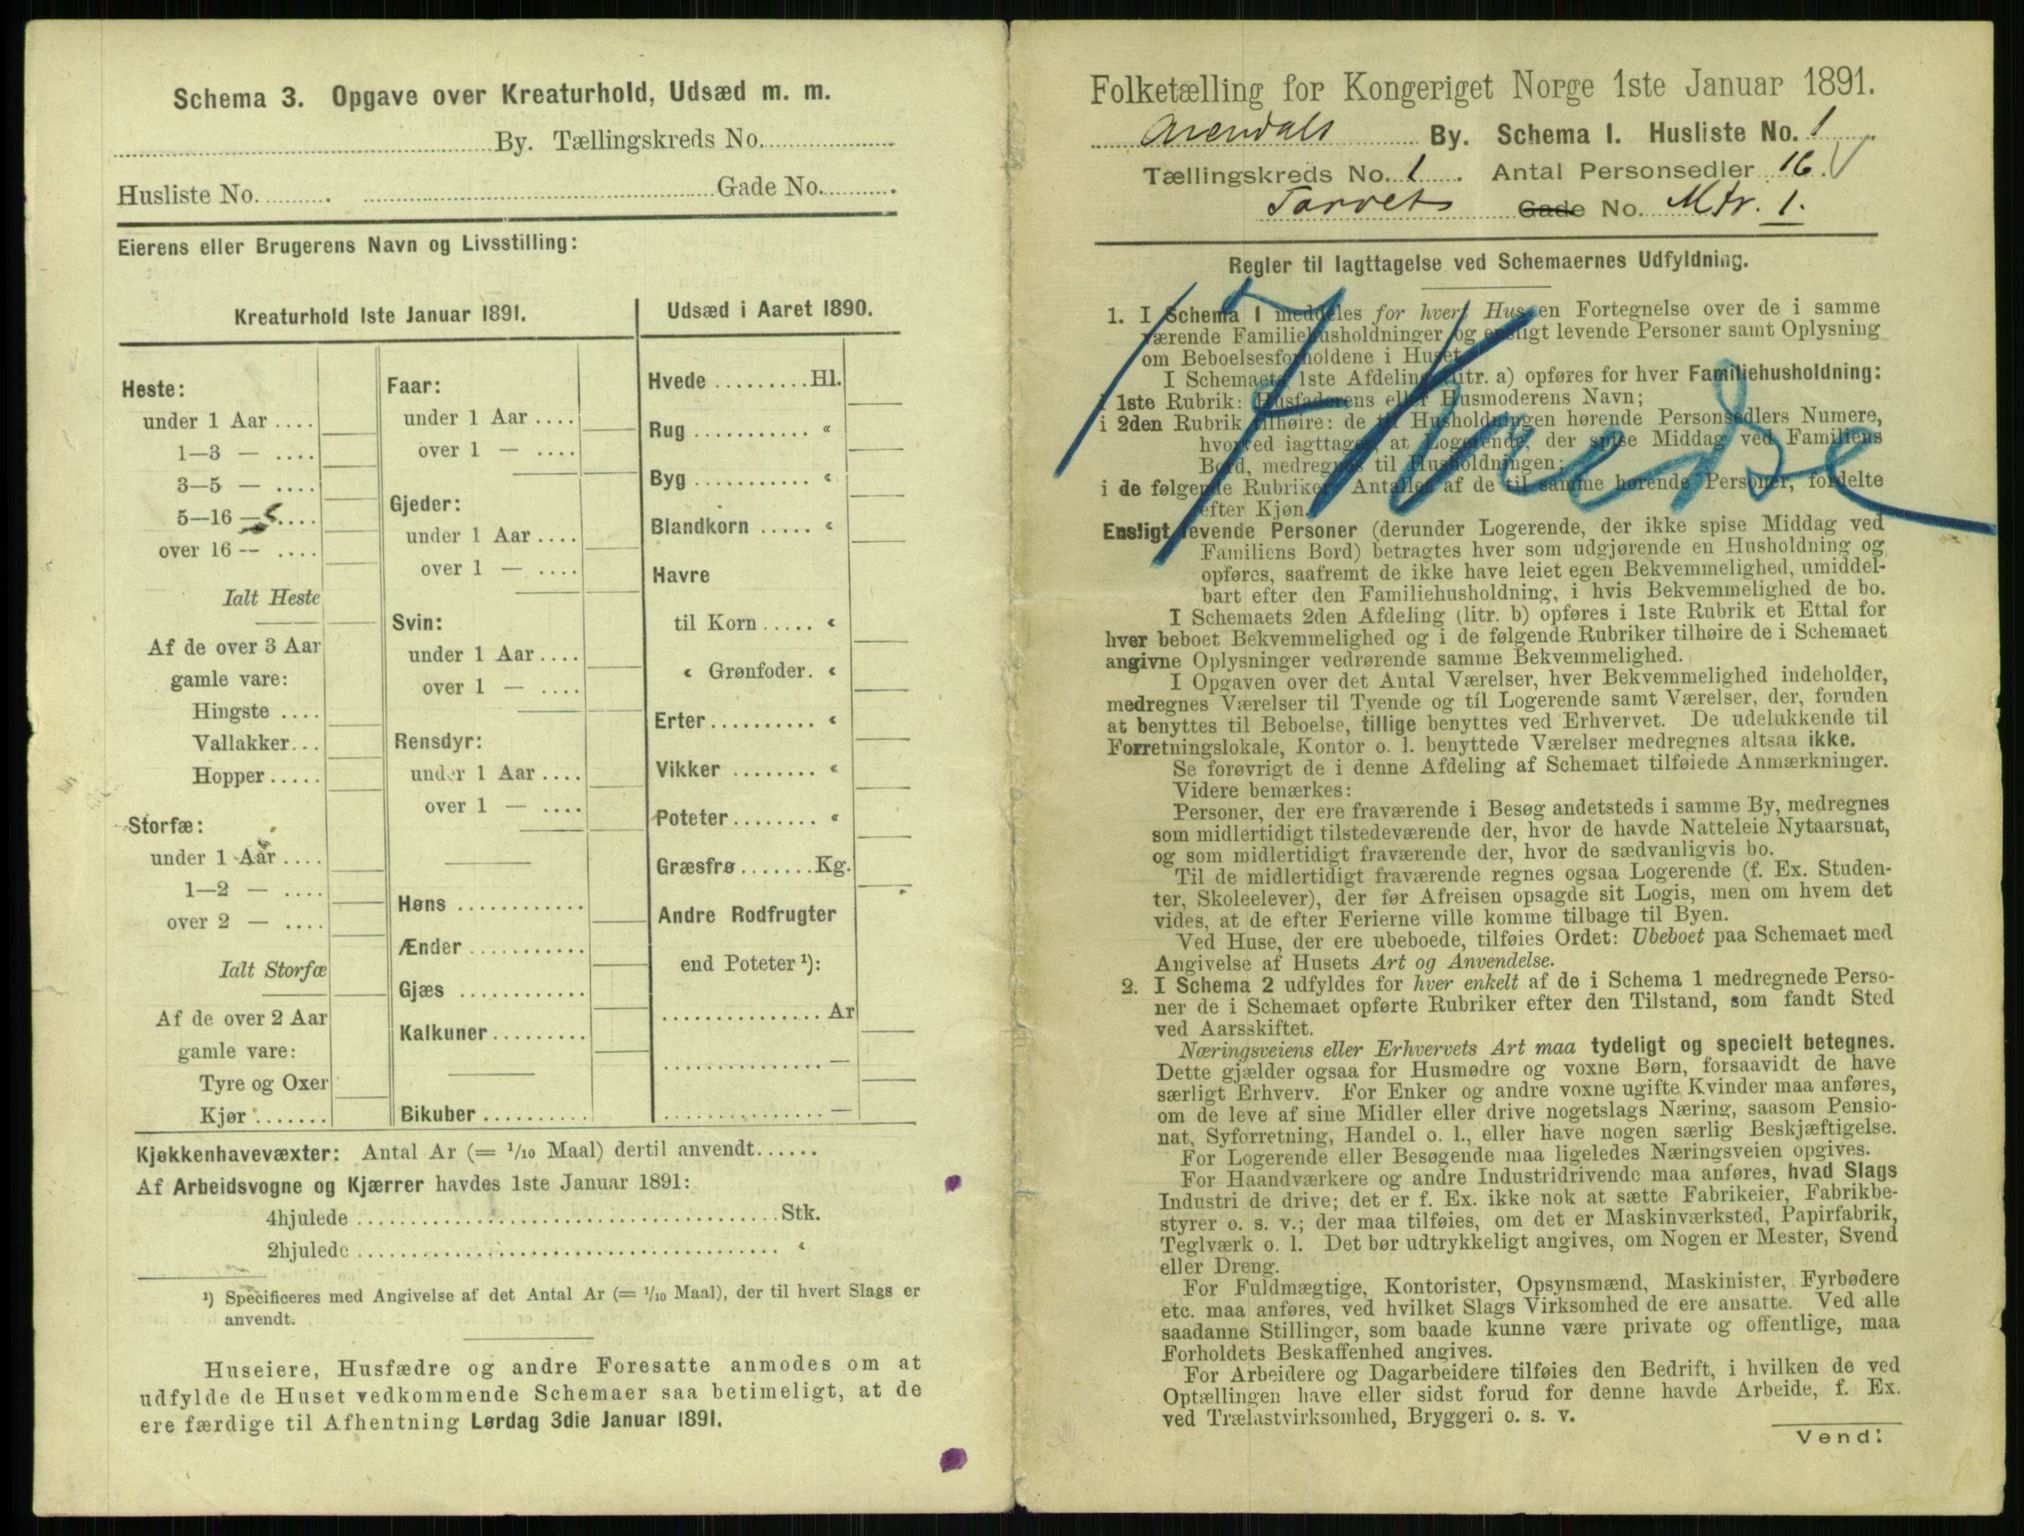 Schema 3. Opgave over Kreaturhold, Udsæd m. m.
By. Tællingskreds No.
Husliste No. Gade No.
Eierens eller Brugerens Navn og Livsstilling:
Kreaturhold 1ste Januar 1891.
Heste:
under 1 Aar
1—3 —
3—5 —
5—16 —
over 16 —
Ialt Heste
Af de over 3 Aar
gamle vare:
Hingste
Vallakker
Hopper
Storfæ:
under 1 Aar
1—2 —
over 2 —
Ialt Storfæ
Af de over 2 Aar
gamle vare:
Tyre og Oxer
Kjør
Faar:
under 1 Aar
over 1 —
Gjeder:
under 1 Aar
over 1 —
Svin:
under 1 Aar
over 1 —
Rensdyr:
under 1 Aar
over 1 —
Høns
Ænder
Gjæs
Kalkuner
Bikuber
Udsæd i Aaret 1890.
Hvede Hl.
Rug «
Byg «
Blandkorn «
Havre
til Korn «
« Grønfoder. «
Erter «
Vikker «
Poteter «
Græsfrø Kg.
Andre Rodfrugter
end Poteter ¹):
Ar
—
—
Kjøkkenhavevæxter: Antal Ar (= 1/10 Maal) dertil anvendt
Af Arbeidsvogne og Kjærrer havdes 1ste Januar 1891:
4hjulede Stk.
2hjulede «
¹) Specificeres med Angivelse af det Antal Ar (= 1/10 Maal), der til hvert Slags er
anvendt.
Huseiere, Husfædre og andre Foresatte anmodes om at
udfylde de Huset vedkommende Schemaer saa betimeligt, at de
ere færdige til Afhentning Lørdag 3die Januar 1891.
Folketælling for Kongeriget Norge 1ste Januar 1891.
Arendals By. Schema 1. Husliste No. 1
Tællingskreds No. 1. Antal Personsedler 16.
Torvet Gade No. Mtr. 1.
Regler til Iagttagelse ved Schemaernes Udfyldning.
1. I Schema 1 meddeles for hvert Hus en Fortegnelse over de i samme
værende Familiehusholdninger og ensligt levende Personer samt Oplysning
om Beboelsesforholdene i Huset.
I Schemaets 1ste Afdeling (litr. a) opføres for hver Familiehusholdning:
i 1ste Rubrik: Husfaderens eller Husmoderens Navn;
i 2den Rubrik tilhøire: de til Husholdningen hørende Personsedlers Numere,
hvorved iagttages, at Logerende, der spise Middag ved Familiens
Bord, medregnes til Husholdningen;
i de følgende Rubriker: Antallet af de til samme hørende Personer, fordelte
efter Kjøn.
Ensligt levende Personer (derunder Logerende, der ikke spise Middag ved
Familiens Bord) betragtes hver som udgjørende en Husholdning og
opføres, saafremt de ikke have leiet egen Bekvemmelighed, umiddel-
bart efter den Familiehusholdning, i hvis Bekvemmelighed de bo.
I Schemaets 2den Afdeling (litr. b) opføres i 1ste Rubrik et Ettal for
hver beboet Bekvemmelighed og i de følgende Rubriker tilhøire de i Schemaet
angivne Oplysninger vedrørende samme Bekvemmelighed.
I Opgaven over det Antal Værelser, hver Bekvemmelighed indeholder,
medregnes Værelser til Tyende og til Logerende samt Værelser, der, foruden
at benyttes til Beboelse, tillige benyttes ved Erhvervet. De udelukkende til
Forretningslokale, Kontor o. l. benyttede Værelser medregnes altsaa ikke.
Se forøvrigt de i denne Afdeling af Schemaet tilføiede Anmærkninger.
Videre bemærkes:
Personer, der ere fraværende i Besøg andetsteds i samme By, medregnes
som midlertidigt tilstedeværende der, hvor de havde Natteleie Nytaarsnat,
og som midlertidigt fraværende der, hvor de sædvanligvis bo.
Til de midlertidigt fraværende regnes ogsaa Logerende (f. Ex. Studen-
ter, Skoleelever), der før Afreisen opsagde sit Logis, men om hvem det
vides, at de efter Ferierne ville komme tilbage til Byen.
Ved Huse, der ere ubeboede, tilføies Ordet: Ubeboet paa Schemaet med
Angivelse af Husets Art og Anvendelse.
2. I Schema 2 udfyldes for hver enkelt af de i Schema 1 medregnede Perso-
ner de i Schemaet opførte Rubriker efter den Tilstand, som fandt Sted
ved Aarsskiftet.
Næringsveiens eller Erhvervets Art maa tydeligt og specielt betegnes.
Dette gjælder ogsaa for Husmødre og voxne Børn, forsaavidt de have
særligt Erhverv. For Enker og andre voxne ugifte Kvinder maa anføres,
om de leve af sine Midler eller drive nogetslags Næring, saasom Pensio-
nat, Syforretning, Handel o. l., eller have nogen særlig Beskjæftigelse.
For Logerende eller Besøgende maa ligeledes Næringsveien opgives.
For Haandværkere og andre Industridrivende maa anføres, hvad Slags
Industri de drive; det er f. Ex. ikke nok at sætte Fabrikeier, Fabrikbe-
styrer o. s. v.; der maa tilføies, om det er Maskinværksted, Papirfabrik,
Teglværk o. l. Det bør udtrykkeligt angives, om Nogen er Mester, Svend
eller Dreng.
For Fuldmægtige, Kontorister, Opsynsmænd, Maskinister, Fyrbødere
etc. maa anføres, ved hvilket Slags Virksomhed de ere ansatte. Ved alle
saadanne Stillinger, som baade kunne være private og offentlige, maa
Forholdets Beskaffenhed angives.
For Arbeidere og Dagarbeidere tilføies den Bedrift, i hvilken de ved
Optællingen have eller sidst forud for denne havde Arbeide, f. Ex.
ved Trælastvirksomhed, Bryggeri o. s. v.
Vend!